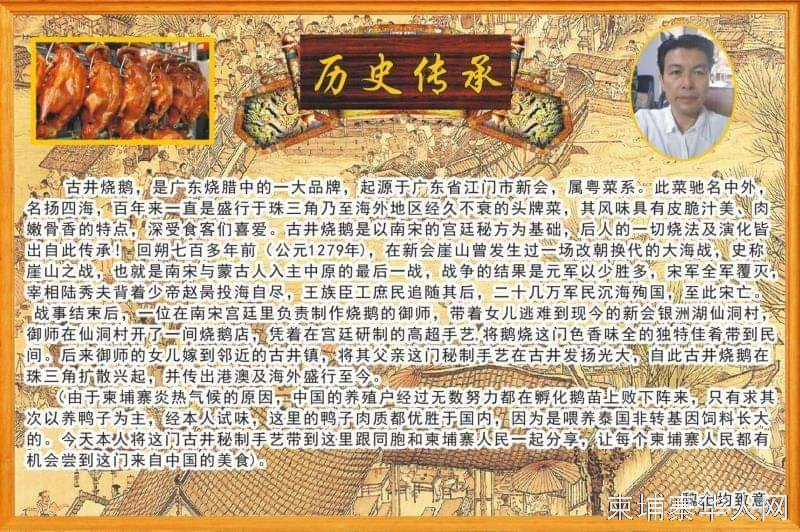 历史传承
古井烧鹅，是广东烧腊中的一大品牌，起源于广东省江门市新会，属粤菜系。此菜驰名中外，
名扬四海，百年来一直是盛行于珠三角乃至海外地区经久不衰的头牌菜，其风味具有皮脆汁美、肉
嫩骨香的特点，深受食客们喜爱。古井烧鹅是以南宋的宫廷秘方为基础，后人的一切烧法及演化皆
出自此传承！回朔七百多年前（公元1279年），在新会崖山曾发生过一场改朝换代的大海战，史称
崖山之战，也就是南宋与蒙古人入主中原的最后一战，战争的结果是元军以少胜多，宋军全军覆灭，
宰相陆秀夫背着少帝赵昺投海自尽，王族臣工庶民追随其后，二十几万军民沉海殉国，至此宋亡。
战事结束后，一位在南宋宫廷里负责制作烧鹅的御师，带着女儿逃难到现今的新会银洲湖仙洞村，
御师在仙洞村开了一间烧鹅店，凭着在宫廷研制的高超手艺，将鹅烧这门色香味全的独特佳肴带到民
间。后来御师的女儿嫁到邻近的古井镇，将其父亲这门秘制手艺在古井发扬光大，自此古井烧鹅在
珠三角扩散兴起，并传出港澳及海外盛行至今。
（由于柬埔寨炎热气候的原因，中国的养殖户经过无数努力都在孵化鹅苗上败下阵来，只有求其
次以养鸭子为主，经本人试味，这里的鸭子肉质都优胜于国内，因为是喂养泰国非转基因饲料长大
的。今天本人将这门古井秘制手艺带到这里跟同胞和柬埔寨人民一起分享，让每个柬埔寨人民都有
机会尝到这门来自中国的美食）。
致意
柬埔寨华人网